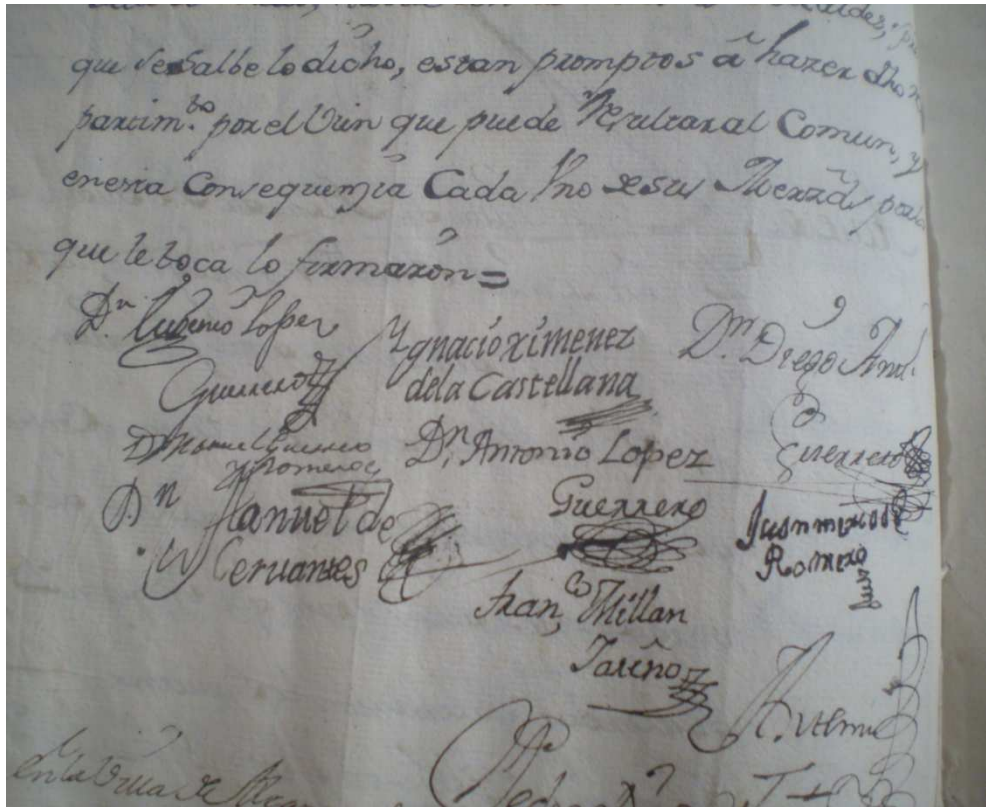 que se salbe lo dicho, estan promptos â hazer dho
partim.to por el vien que puede Resultar al Comun, y
en esta Consequenzia Cada Vno de sus Merzds por lo
que le toca lo firmaron =
Dn Eugenio Lopez
Guerrero
Ygnacio ximenez
dela Castellana
Dn Diego
Guerrero
Dn Manuel Guerrero
y Romero
Dn Antonio Lopez
Guerrero
Dn Manuel de
Ceruantes
Juan
Romero
Fran,co Millan
Jareño
en la Villa de